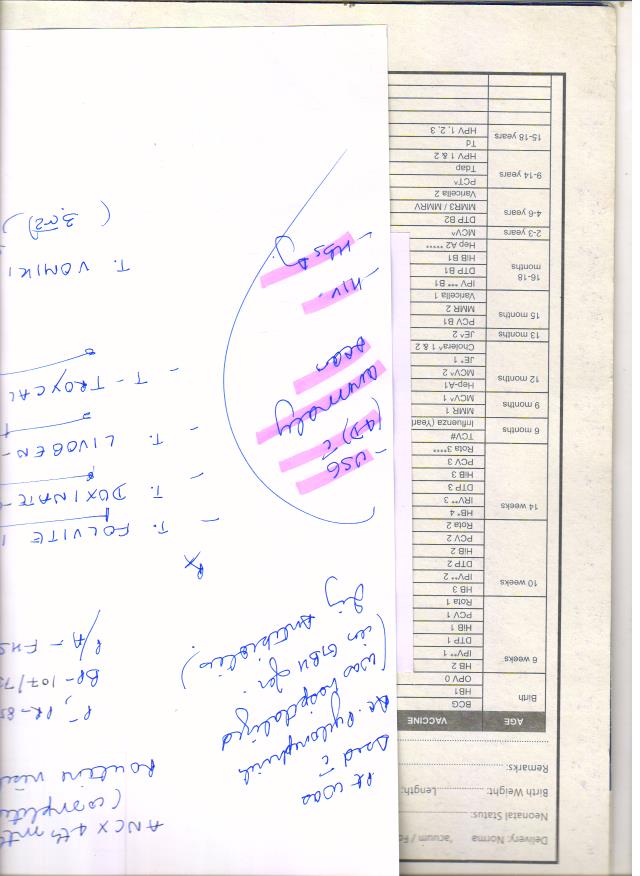 Delivery: Norma
'acuum / Fo
Neonatal Status:
Birth Weight:
Length:
Remarks:
AGE VACCINE
Birth
BCG
HB1
OPV 0
6 weeks
HB 2
IPV** 1
DTP 1
HiB 1
PCV 1
Rota 1
10 weeks
HB 3
IPV** 2
DTP 2
HiB 2
PCV 2
Rota 2
14 weeks
HB* 4
IRV** 3
DTP 3
HiB 3
PCV 3
Rota 3****
6 months
TCV#
Influenza (Year
9 months
MMR 1
MCV^ 1
12 months
Hep-A1
MCV^ 2
JE^ 1
Cholera^ 1 & 2
13 months
JE^ 2
15 months
PCV B1
MMR 2
Varicella 1
16-18 months
IPV *** B1
DTP B1
HiB B1
Hep A2 *****
2-3 years
MCV^
4-6 years
DTP B2
MMR3 / MMRV
Varicella 2
9-14 years
PCT^
Tdap
HPV 1 & 2
15-18 years
Td
HPV 1, 2, 3
ANC x 4th mth
(complete
Routine
Pt was
Ac. Pyelonephritis
(was hospitalized
for
Inj Antibiotics)
P/A -
BP - 107/7
Rx
- T. FOLVITE 1
- T. DOXINATE
- T. LIVOGEN -
- T - TROYCAL
T. VOMIKI
- USG
(4D) c̄
anomaly
scan
- HIV.
- HBsAg